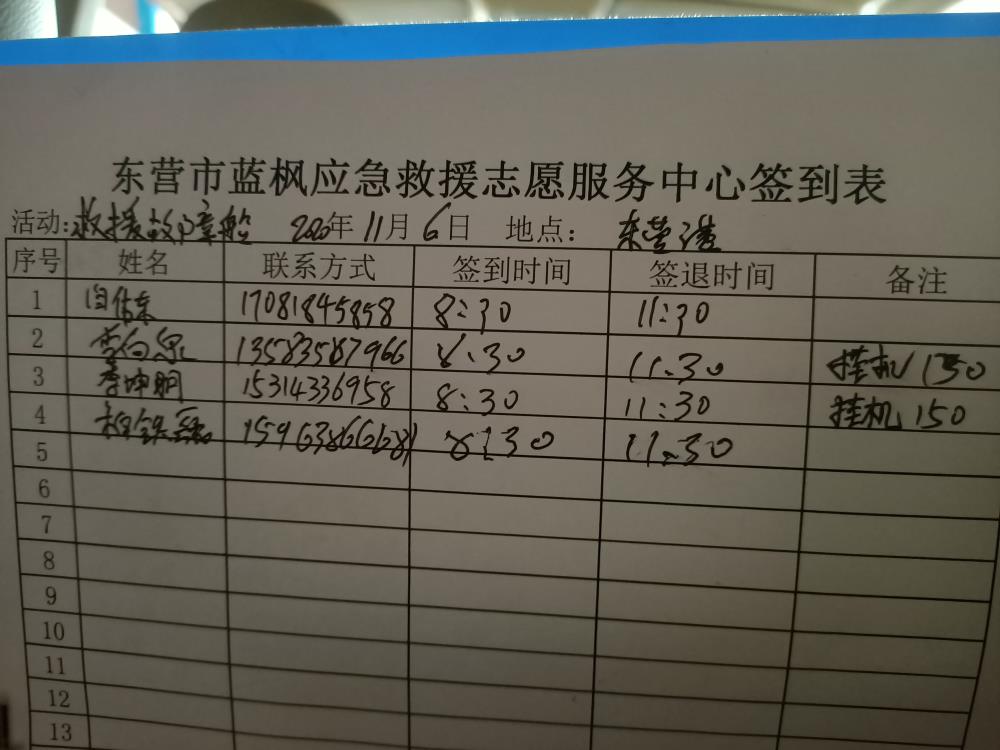 东营市蓝枫应急救援志愿服务中心签到表
活动:救援故障船 2020年11月6日 地点: 东营港
序号 姓名 联系方式 签到时间 签退时间 备注
1 17081845858 8:30 11:30
2 李向泉 13583587966 8:30 11:30 挂机150
3 李坤明 15314336958 8:30 11:30 挂机150
4 8:30 11:30
5
6
7
8
9
10
11
12
13